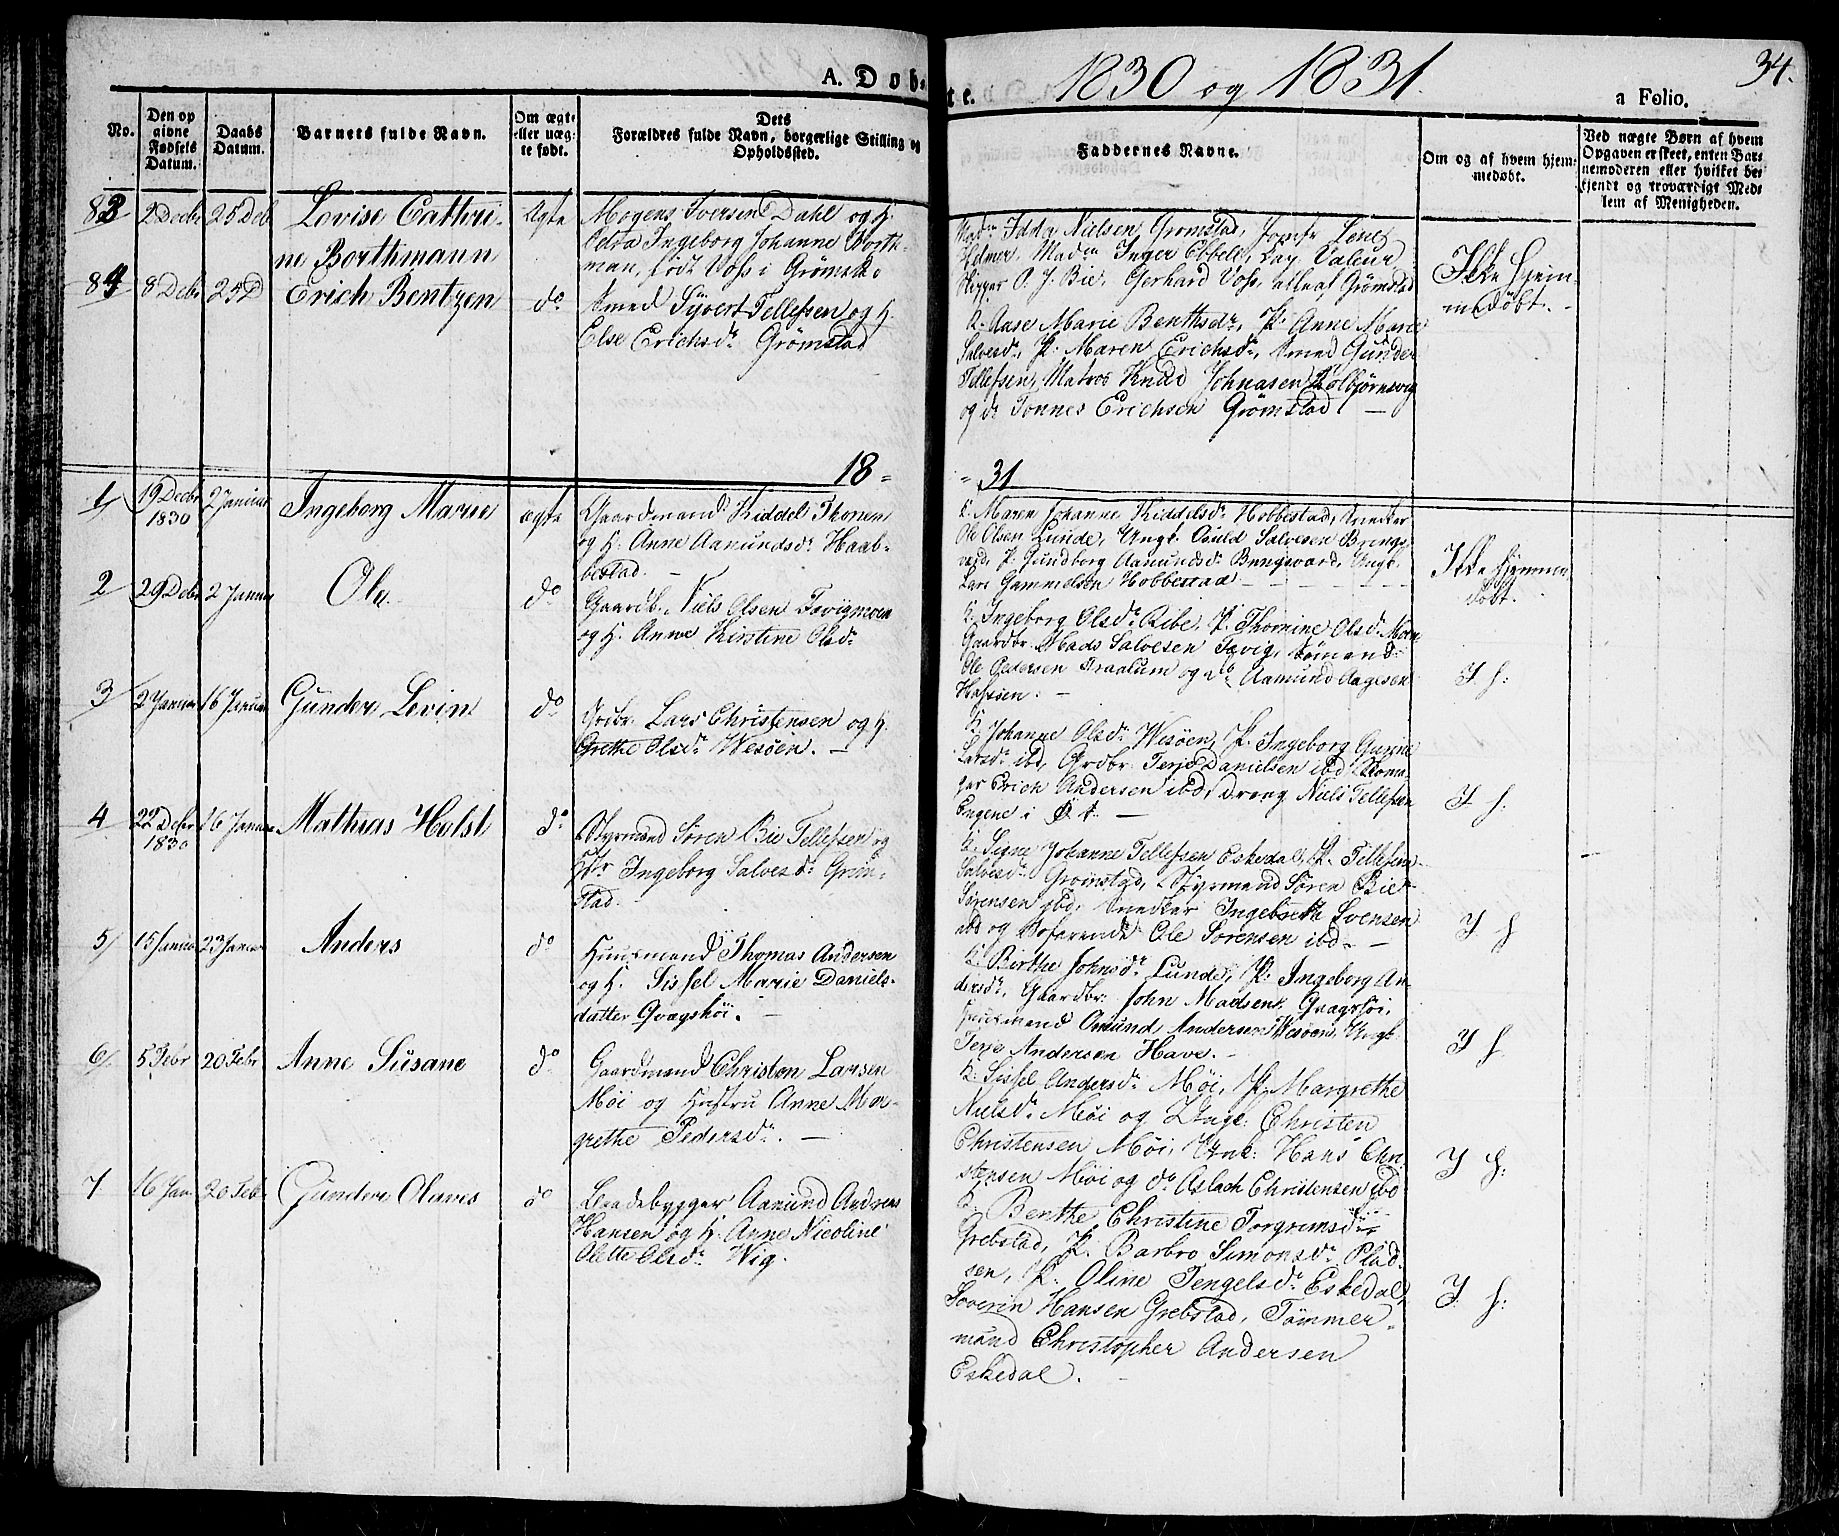 A. Døb-
te.
1830 og 1831.
34.
a Folio.
No.
Den op
givne
Fødsels
Datum.
Daabs
Datum.
Barnets fulde Navn.
Om ægte
eller uæg-
te født.
Dets
Forældres fulde Navn, borgerlige Stilling og
Opholdssted.
Faddernes Navne.
Om og af hvem hjem-
medøbt.
Ved uægte Børn af hvem
Opgaven er skeet, enten Bar-
nemoderen eller hvilket be-
kjendt og troværdigt Med-
lem af Menigheden.
83
2 Decbr
25 Deb
Lovise Cathri-
ne Borthmann
Ægte
Mogens Iversen Dahl og H.
Edva Ingeborg Johanne Borth-
man, født Voss i Grømst.
Mad. Idda Nielsen Grømstad, Jomfr Lene
Holmer, Madm Inger Ebbell, Lay Valeur
Skipper O. J. Bie, Gerhard Voss, alle af Grømstad
Ikke hjem-
medøbt.
84
8 Debr
25 D
Erich Bentzen
do
Smed Syvert Tellefsen og H.
Else Erichsdr Grømstad
K. Aase Marie Benthsdr, P. Anne Marie
Salvesdr, P. Maren Erichsdr, Smed Gunder
Tellefsen, Matros Knud Johnasen Kolbjørnsvig
og do Tonnes Erichsen Grømstad
18 =
= 31
1
19 Decbr
1830
2 Januar
Ingeborg Marie
ægte
Gaardmand Kiddel Thonen
og H. Anne Aamundsdr Haab-
bestad.
K. Maren Johanne Kiddelsdr Hobbestad, Snedker
Ole Olsen Lunde, Ungk. Osuld Salvesen Brings-
værd, P. Gundborg Aamundsdr Bringsværd, Ungk.
Lars Gammelsen Hobbestad
Ikke hjemme-
døbt.
2
29 Debr
2 Januar
Ole
do
Gaardb. Niels Olsen Tøvigmoen
og H. Anne Kirstine Olsdr
K. Ingeborg Olsdr Ribe, P. Thornine Olsdr Moen
Gaardbr Mads Salvesen Tøvig, Sømand
Ole Pedersen Traalum og do Aamund Aagesen
Hassen.
I h:
3
2 Januar
16 Januar
Gunder Levin
do
Grdbr. Lars Christensen og H.
Grethe Olsdr Wesøen.
K. Johanne Olsdr Wesøen, P. Ingeborg Gurine
Larsdr ibd, Grdbr Terje Danielsen ibd,
Erich Andersen ibd, Dreng Niels Tellefsen
Engene i Ø. A.
I h:
4
22 Debr
1830
16 Januar
Mathias Holst
do
Styrmand Søren Bie Tellefsen og
Hdr Ingeborg Salvesdr Grim-
stad.
K. Signe Johanne Tellefsen Eskedal, P. Tellefine
Salvesdr Grømstad, Styrmand Søren Bie
Sørensen ibd, Snedker Ingebreth Svensen
ibd og Søfarende Ole Sørensen ibd.
I h
5
15 Januar
23 Januar
Anders
do
Huusmand Thomas Andersen
og H. Sissel Marie Daniels-
datter Qvagshøi.
K. Birthe Johnsdr Lunde, P. Ingeborg An-
dersdr, Gaardbr: John Madsen Qvagshøi,
Huusmand Omund Andersen Wesøen, Ungk.
Terje Andersen Have.
I h
6
5 Febr
20 Febr
Anne Susane
do
Gaardmand Christen Larsen
Møi og Hustru Anne Mar-
grethe Pedersdr.
K. Sissel Andersdr Møi, P. Margrethe
Nielsdr Møi og Ungk: Christen
Christensen Møi, Ungk: Hans Chri-
stensen Møi og do Aslach Christensen ibd
I h:
7
16 Jan
20 Febr
Gunder Olaves
do
Baadebygger Aamund Andreas
Hansen og H. Anne Nicoline
Olette Olsdr Wig.
K. Benthe Christine Torgrimsdr
Grebstad, P. Barbro Simonsdr Plad-
sen, P. Oline Tengelsdr Eskedal,
Soverin Hansen Grebstad, Tømmer-
mand Christopher Andersen
Eskedal.
I h: